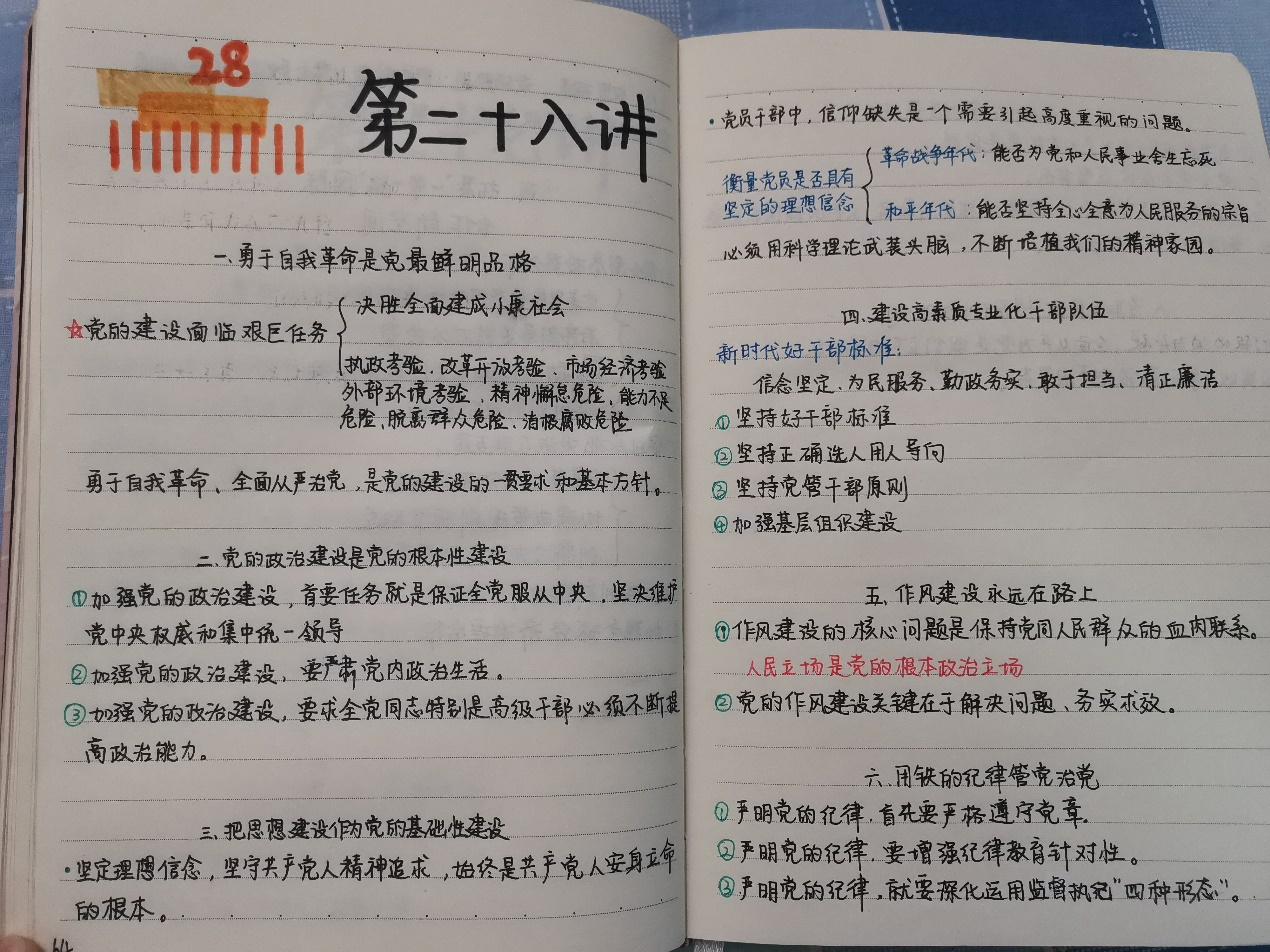 28
第二十八讲
一、勇于自我革命是党最鲜明品格
☆党的建设面临艰巨任务
决胜全面建成小康社会
执政考验、改革开放考验、市场经济考验
外部环境考验、精神懈怠危险、能力不足
危险、脱离群众危险、消极腐败危险
勇于自我革命、全面从严治党,是党的建设的一贯要求和基本方针。
二、党的政治建设是党的根本性建设
①加强党的政治建设,首要任务就是保证全党服从中央,坚决维护
党中央权威和集中统一领导
②加强党的政治建设,要严肃党内政治生活。
③加强党的政治建设,要求全党同志特别是高级干部必须不断提
高政治能力。
三、把思想建设作为党的基础性建设
·坚定理想信念,坚守共产党人精神追求,始终是共产党人安身立命
的根本。
64
·党员干部中,信仰缺失是一个需要引起高度重视的问题。
衡量党员是否具有
坚定的理想信念
革命战争年代:能否为党和人民事业舍生忘死
和平年代:能否坚持全心全意为人民服务的宗旨
必须用科学理论武装头脑,不断培植我们的精神家园。
四、建设高素质专业化干部队伍
新时代好干部标准:
信念坚定、为民服务、勤政务实、敢于担当、清正廉洁
①坚持好干部标准
②坚持正确选人用人导向
③坚持党管干部原则
④加强基层组织建设
五、作风建设永远在路上
①作风建设的核心问题是保持党同人民群众的血肉联系。
人民立场是党的根本政治立场
②党的作风建设关键在于解决问题、务实求效。
六、用铁的纪律管党治党
①严明党的纪律,首先要严格遵守党章.
②严明党的纪律,要增强纪律教育针对性。
③严明党的纪律,就要深化运用监督执纪"四种形态"。